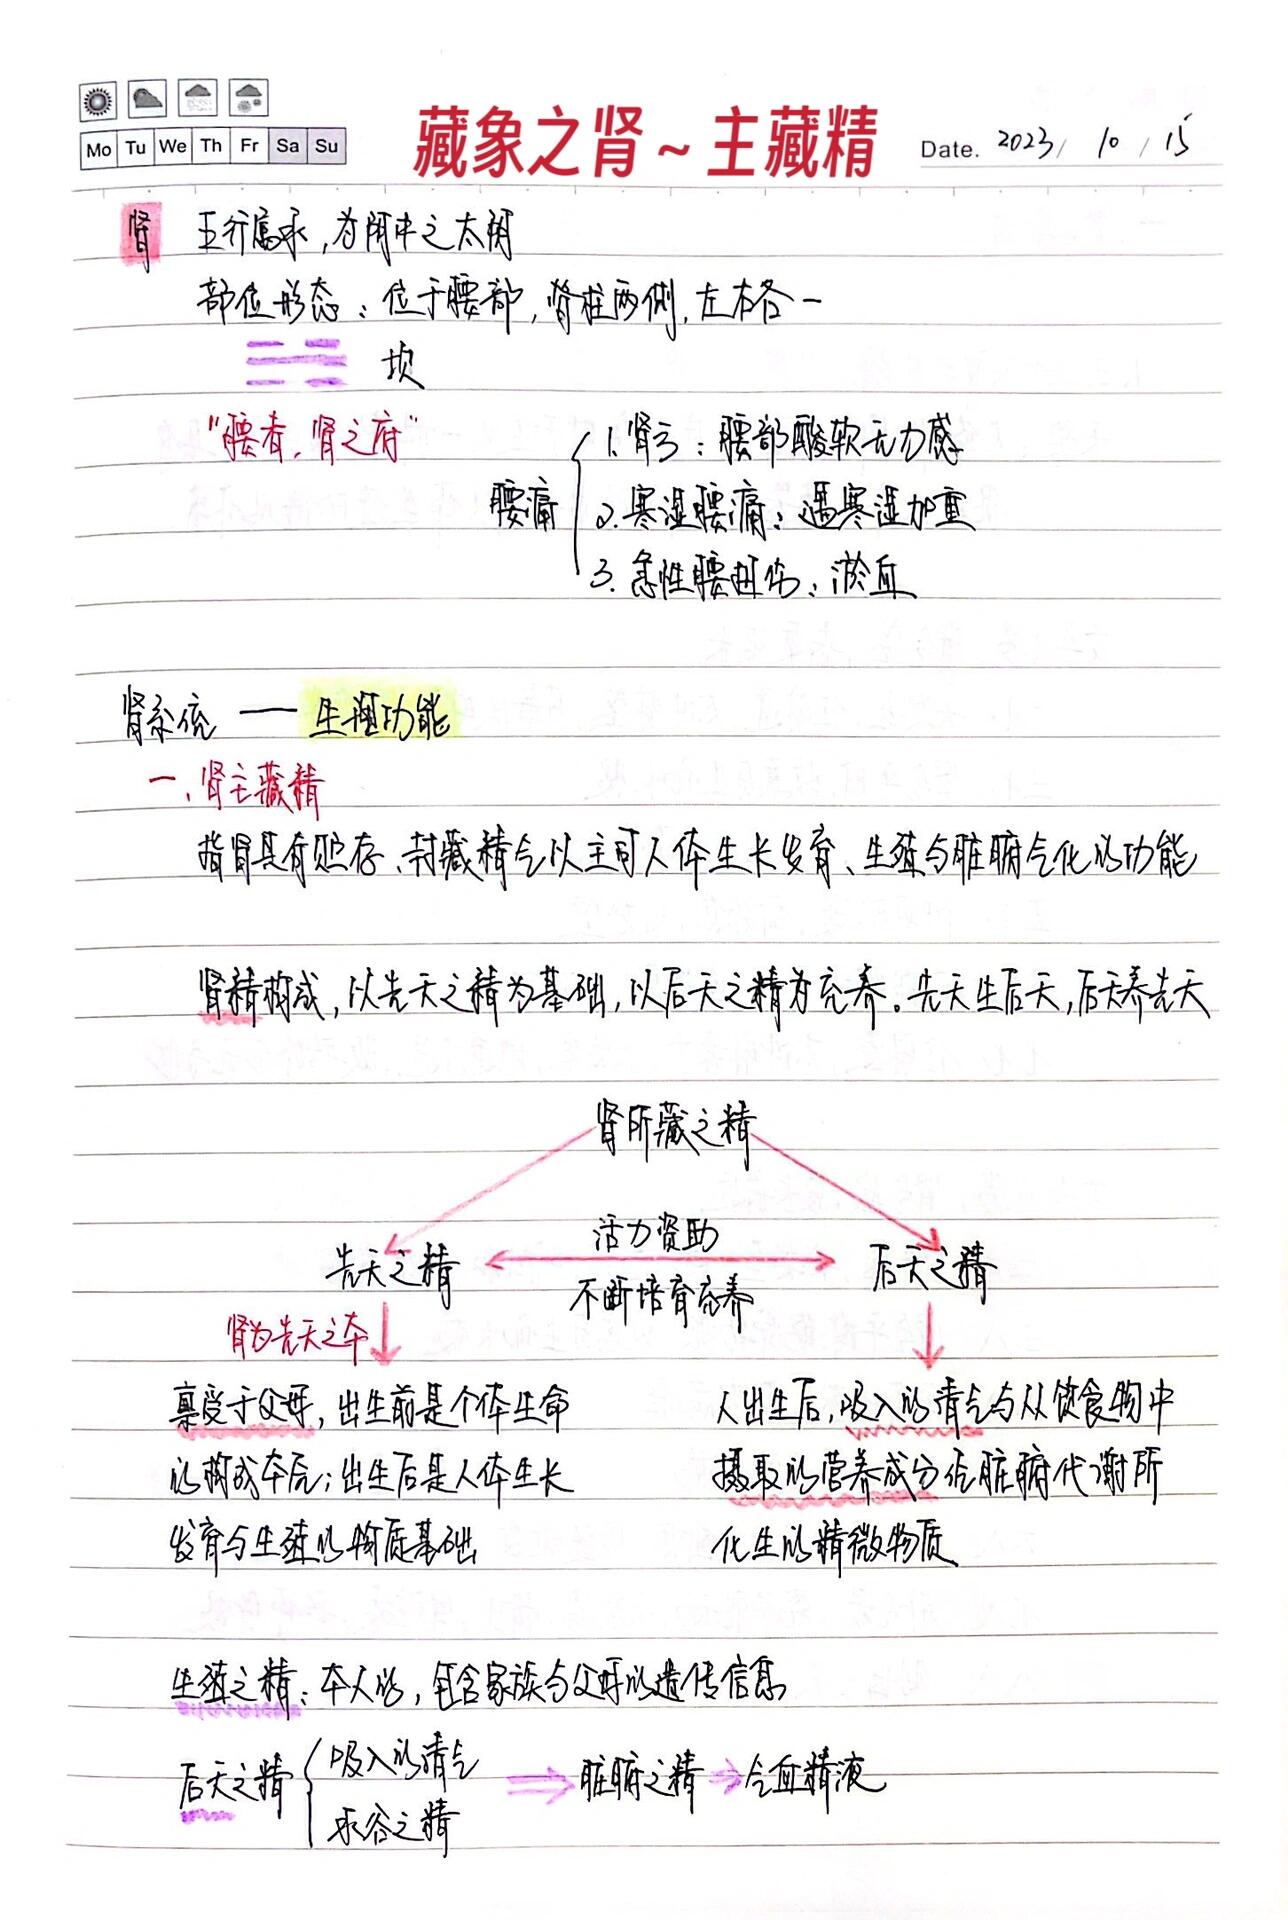 Mo Tu We Th Fr Sa Su
藏象之肾~主藏精
Date. 2023/ 10 / 15
肾 五行属水,为阴中之太阴
部位形态:位于腰部,脊柱两侧,左右各一
坎
"腰者,肾之府"
腰痛
1.肾亏:腰部酸软无力感
2.寒湿腰痛:遇寒湿加重
3.急性腰扭伤:淤血
肾系统 —— 生理功能
一、肾主藏精
指肾具有贮存、封藏精气以主司人体生长发育、生殖与脏腑气化的功能
肾精构成,以先天之精为基础,以后天之精为充养。先天生后天,后天养先天
肾所藏之精
活力资助
先天之精 后天之精
不断培育充养
肾为先天之本
禀受于父母,出生前是个体生命
的构成本原;出生后是人体生长
发育与生殖的物质基础
人出生后,吸入的清气与从饮食物中
摄取的营养成分经脏腑代谢所
化生的精微物质
生殖之精:本人的,包含家族与父母的遗传信息
后天之精
吸入的清气
水谷之精
脏腑之精 气血精液